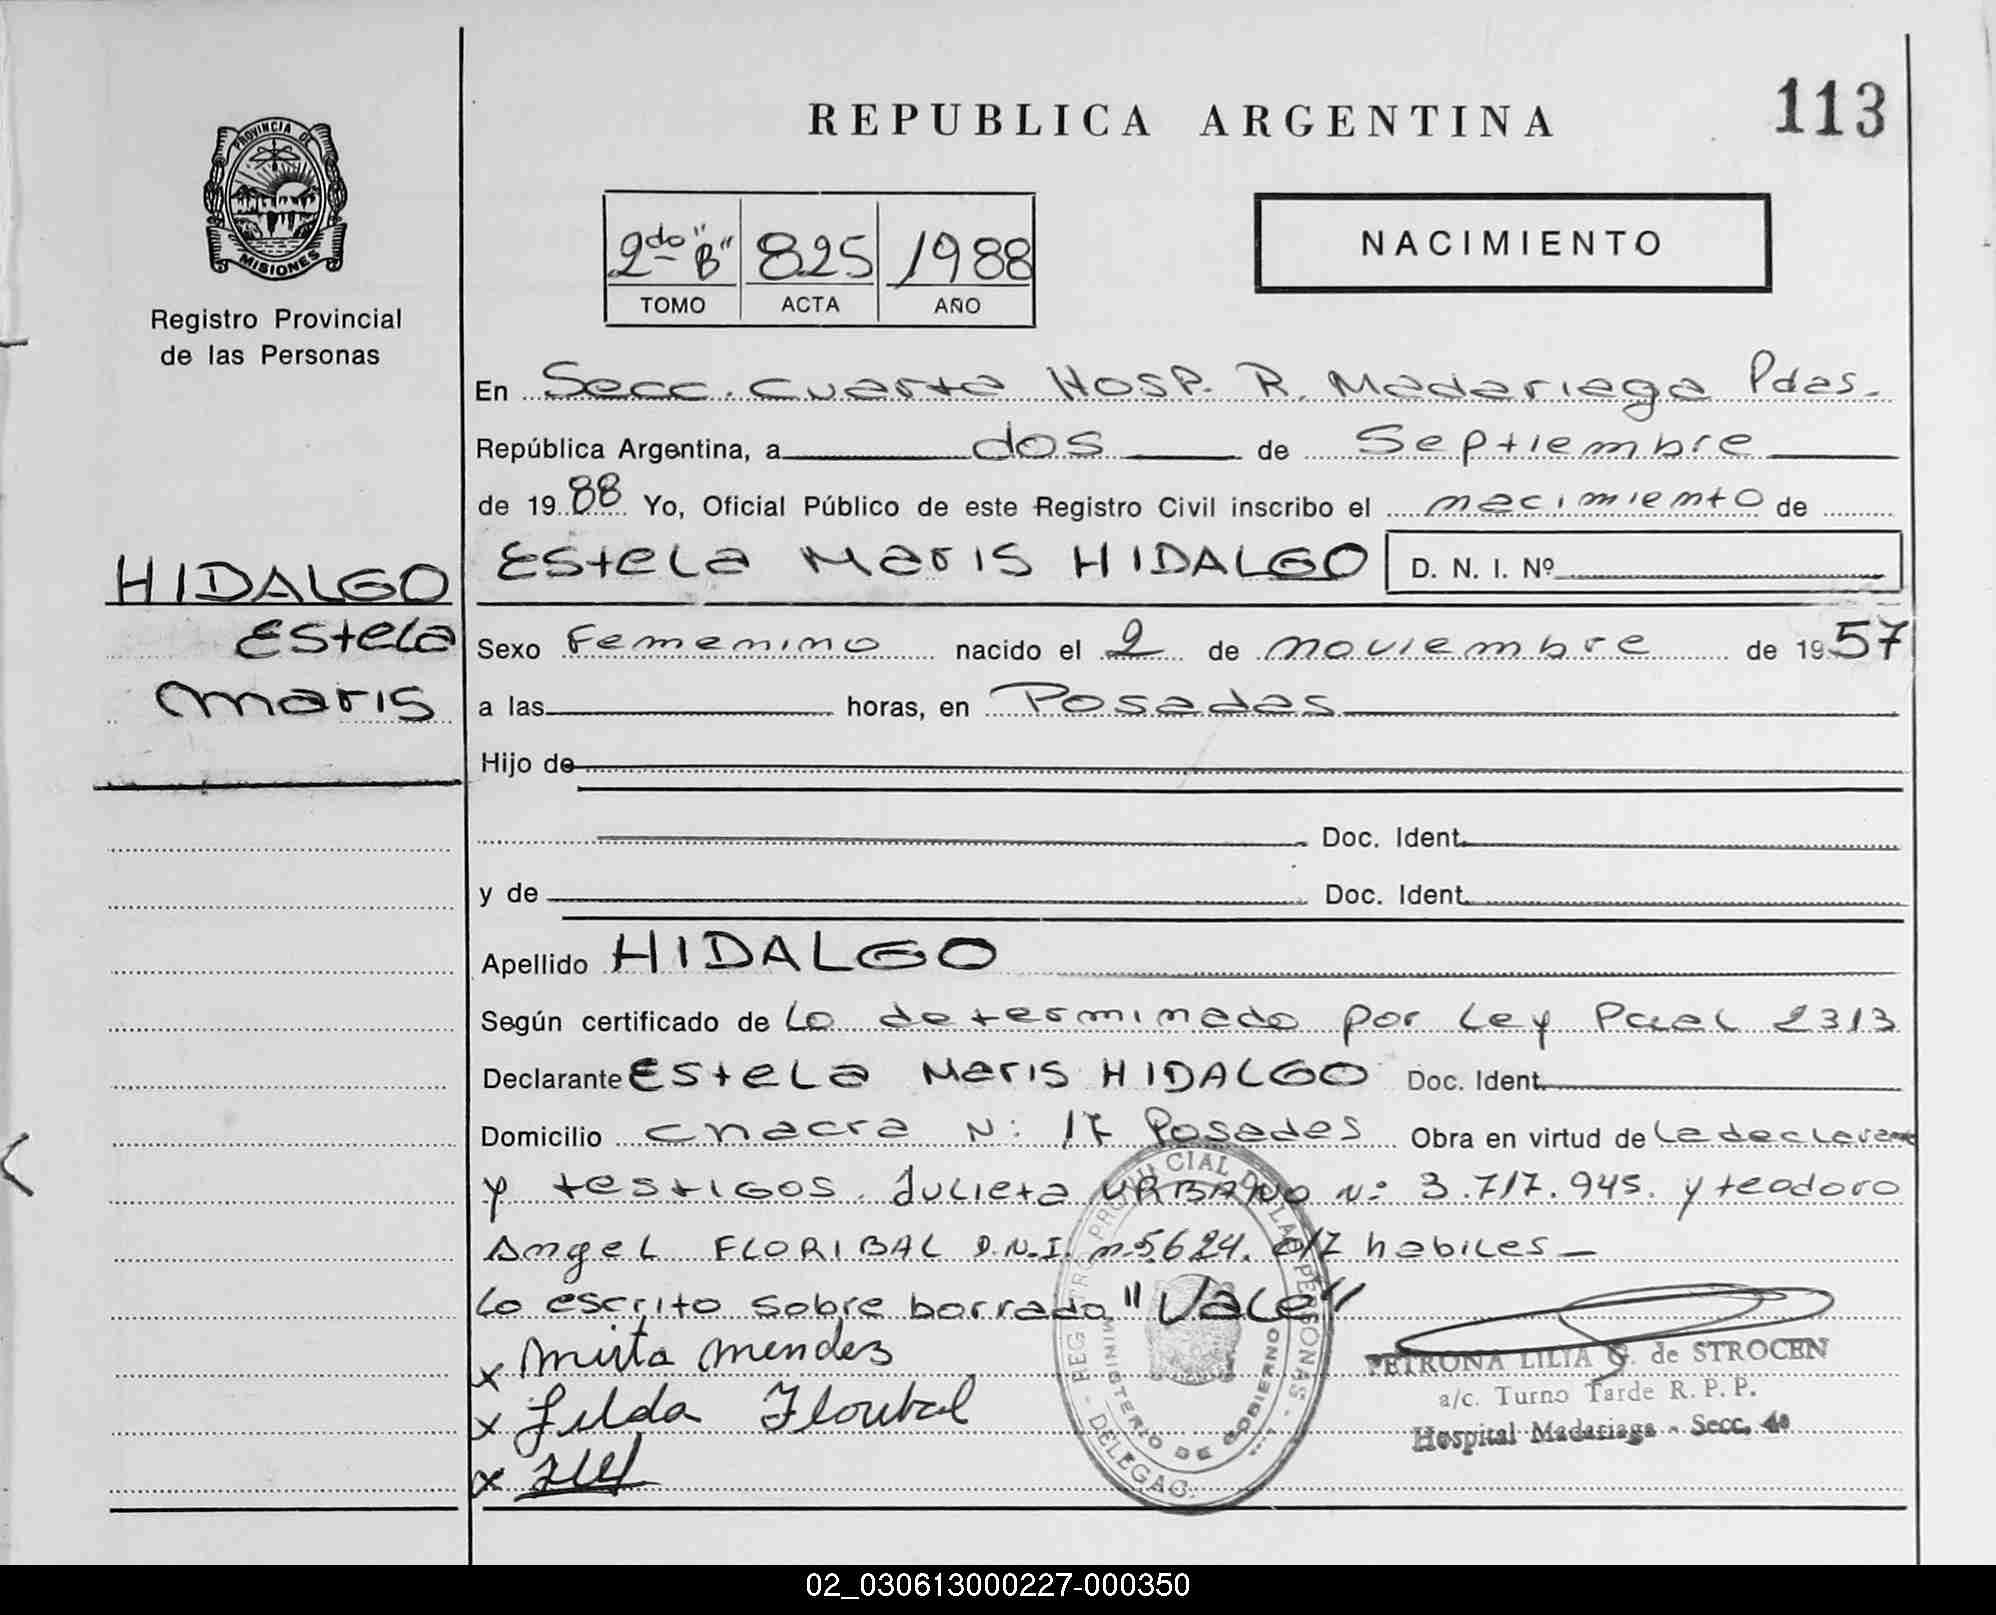 REPUBLICA ARGENTINA
113
PROVINCIA DE
MISIONES
Registro Provincial
de las Personas
2do "B" 825 1988
TOMO ACTA AÑO
NACIMIENTO
En Secc. Cuarta Hosp. R. Madariaga Pdas.
República Argentina, a dos de Septiembre
de 1988 Yo, Oficial Público de este Registro Civil inscribo el nacimiento de
HIDALGO
Estela
Maris
Estela Maris HIDALGO D. N. I. Nº
Sexo Femenino nacido el 2 de noviembre de 1957
a las horas, en Posadas
Hijo de
Doc. Ident.
y de Doc. Ident.
Apellido HIDALGO
Según certificado de Lo determinado por Ley Pcial 2313
Declarante Estela Maris HIDALGO Doc. Ident.
Domicilio Chacra N: 17 Posadas Obra en virtud de La declarante
y testigos. Julieta URBANO Nº 3.717.945. y teodoro
Angel FLORIBAL D.N.I. nº 5624. habiles
Lo escrito sobre borrado "Vale"
x Mirta Mendez
x Gilda Floribal
x
REG. PROVINCIAL DE LAS PERSONAS - DELEGAC.
MINISTERIO DE GOBIERNO
PETRONA LILIA G. de STROCEN
a/c. Turno Tarde R. P. P.
Hospital Madariaga - Secc. 4a
02_030613000227-000350